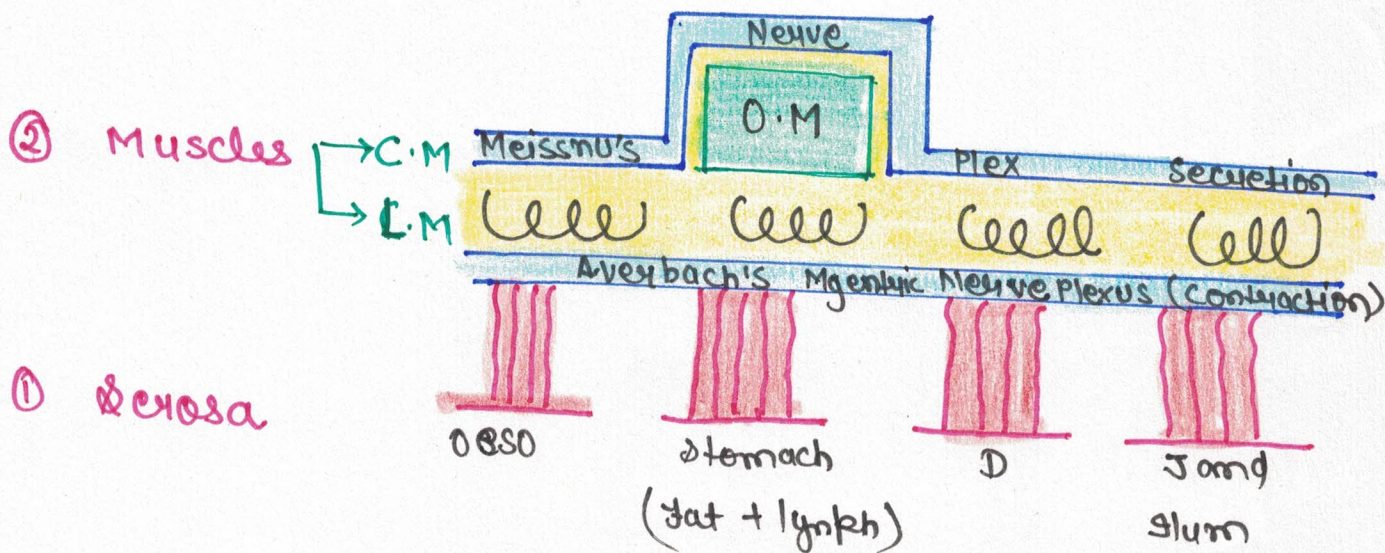 Nerve
O.M
② Muscles → C.M Meissnu's Plex Secretion
→ L.M
Averbach's Mgentric Nerve plexus (Contraction)
① Serosa
OESO Stomach D J and
(Fat + lymph) Ilum